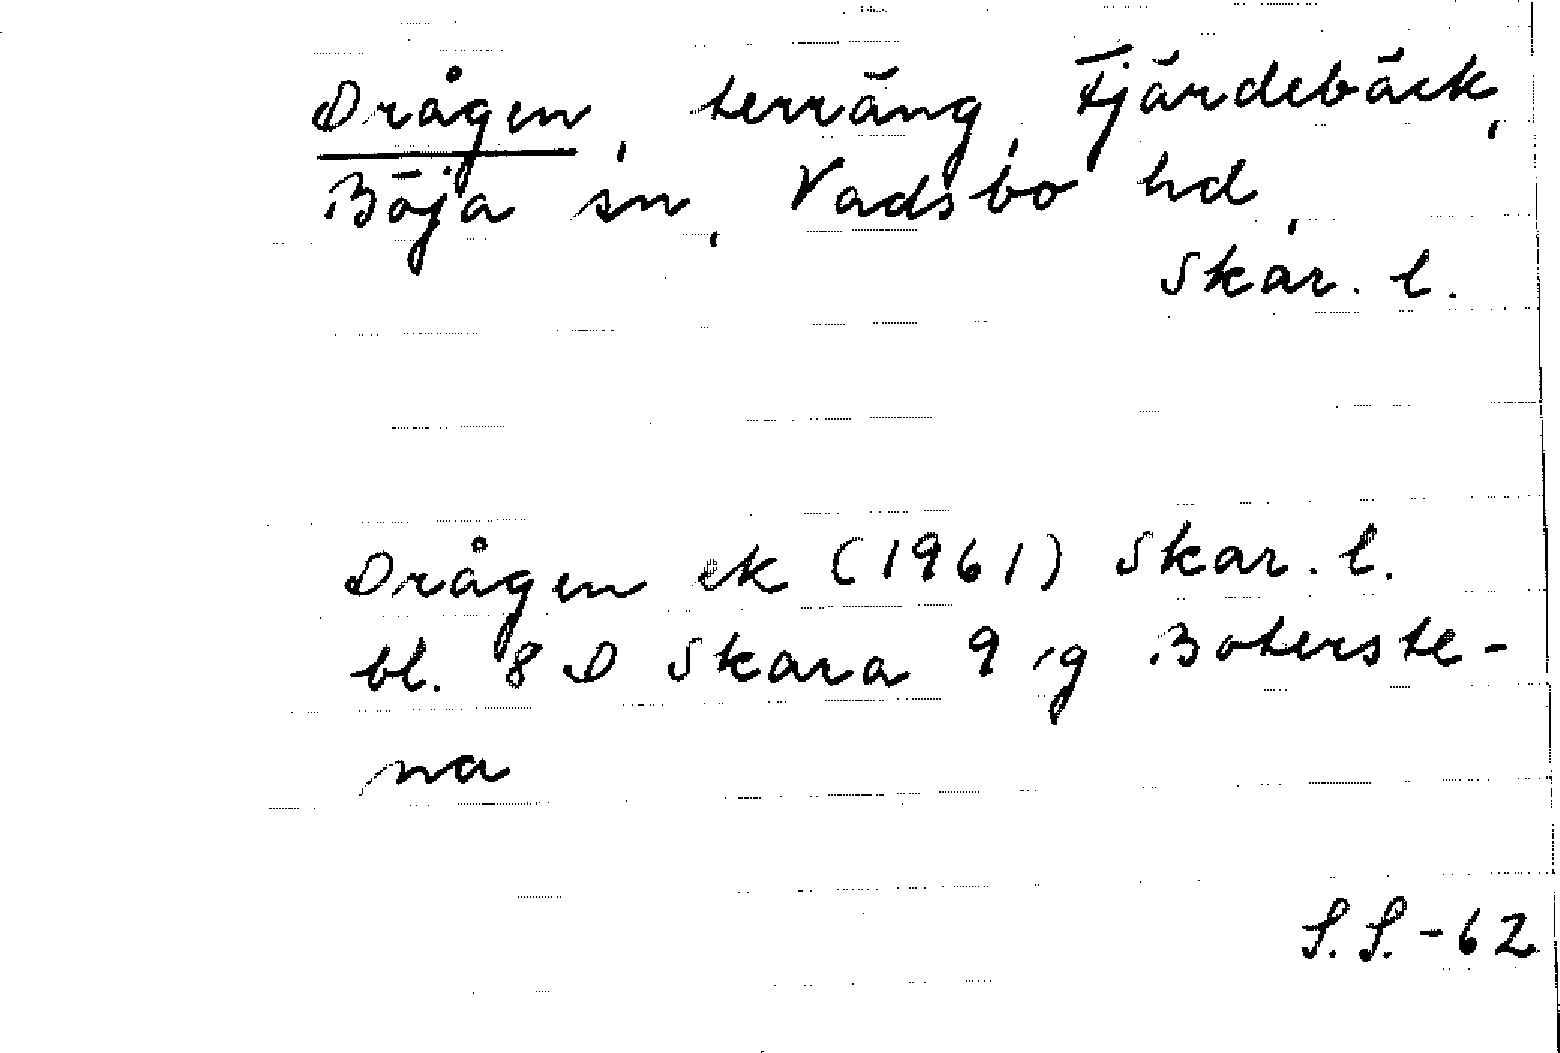 Drågen, terräng, Fjärdebäck,
Böja sn, Vadsbo hd,
Skar. l.
Drågen ek (1961) Skar. l.
bl. 8 D Skara 9 g Boterste-
na
S.S.-62